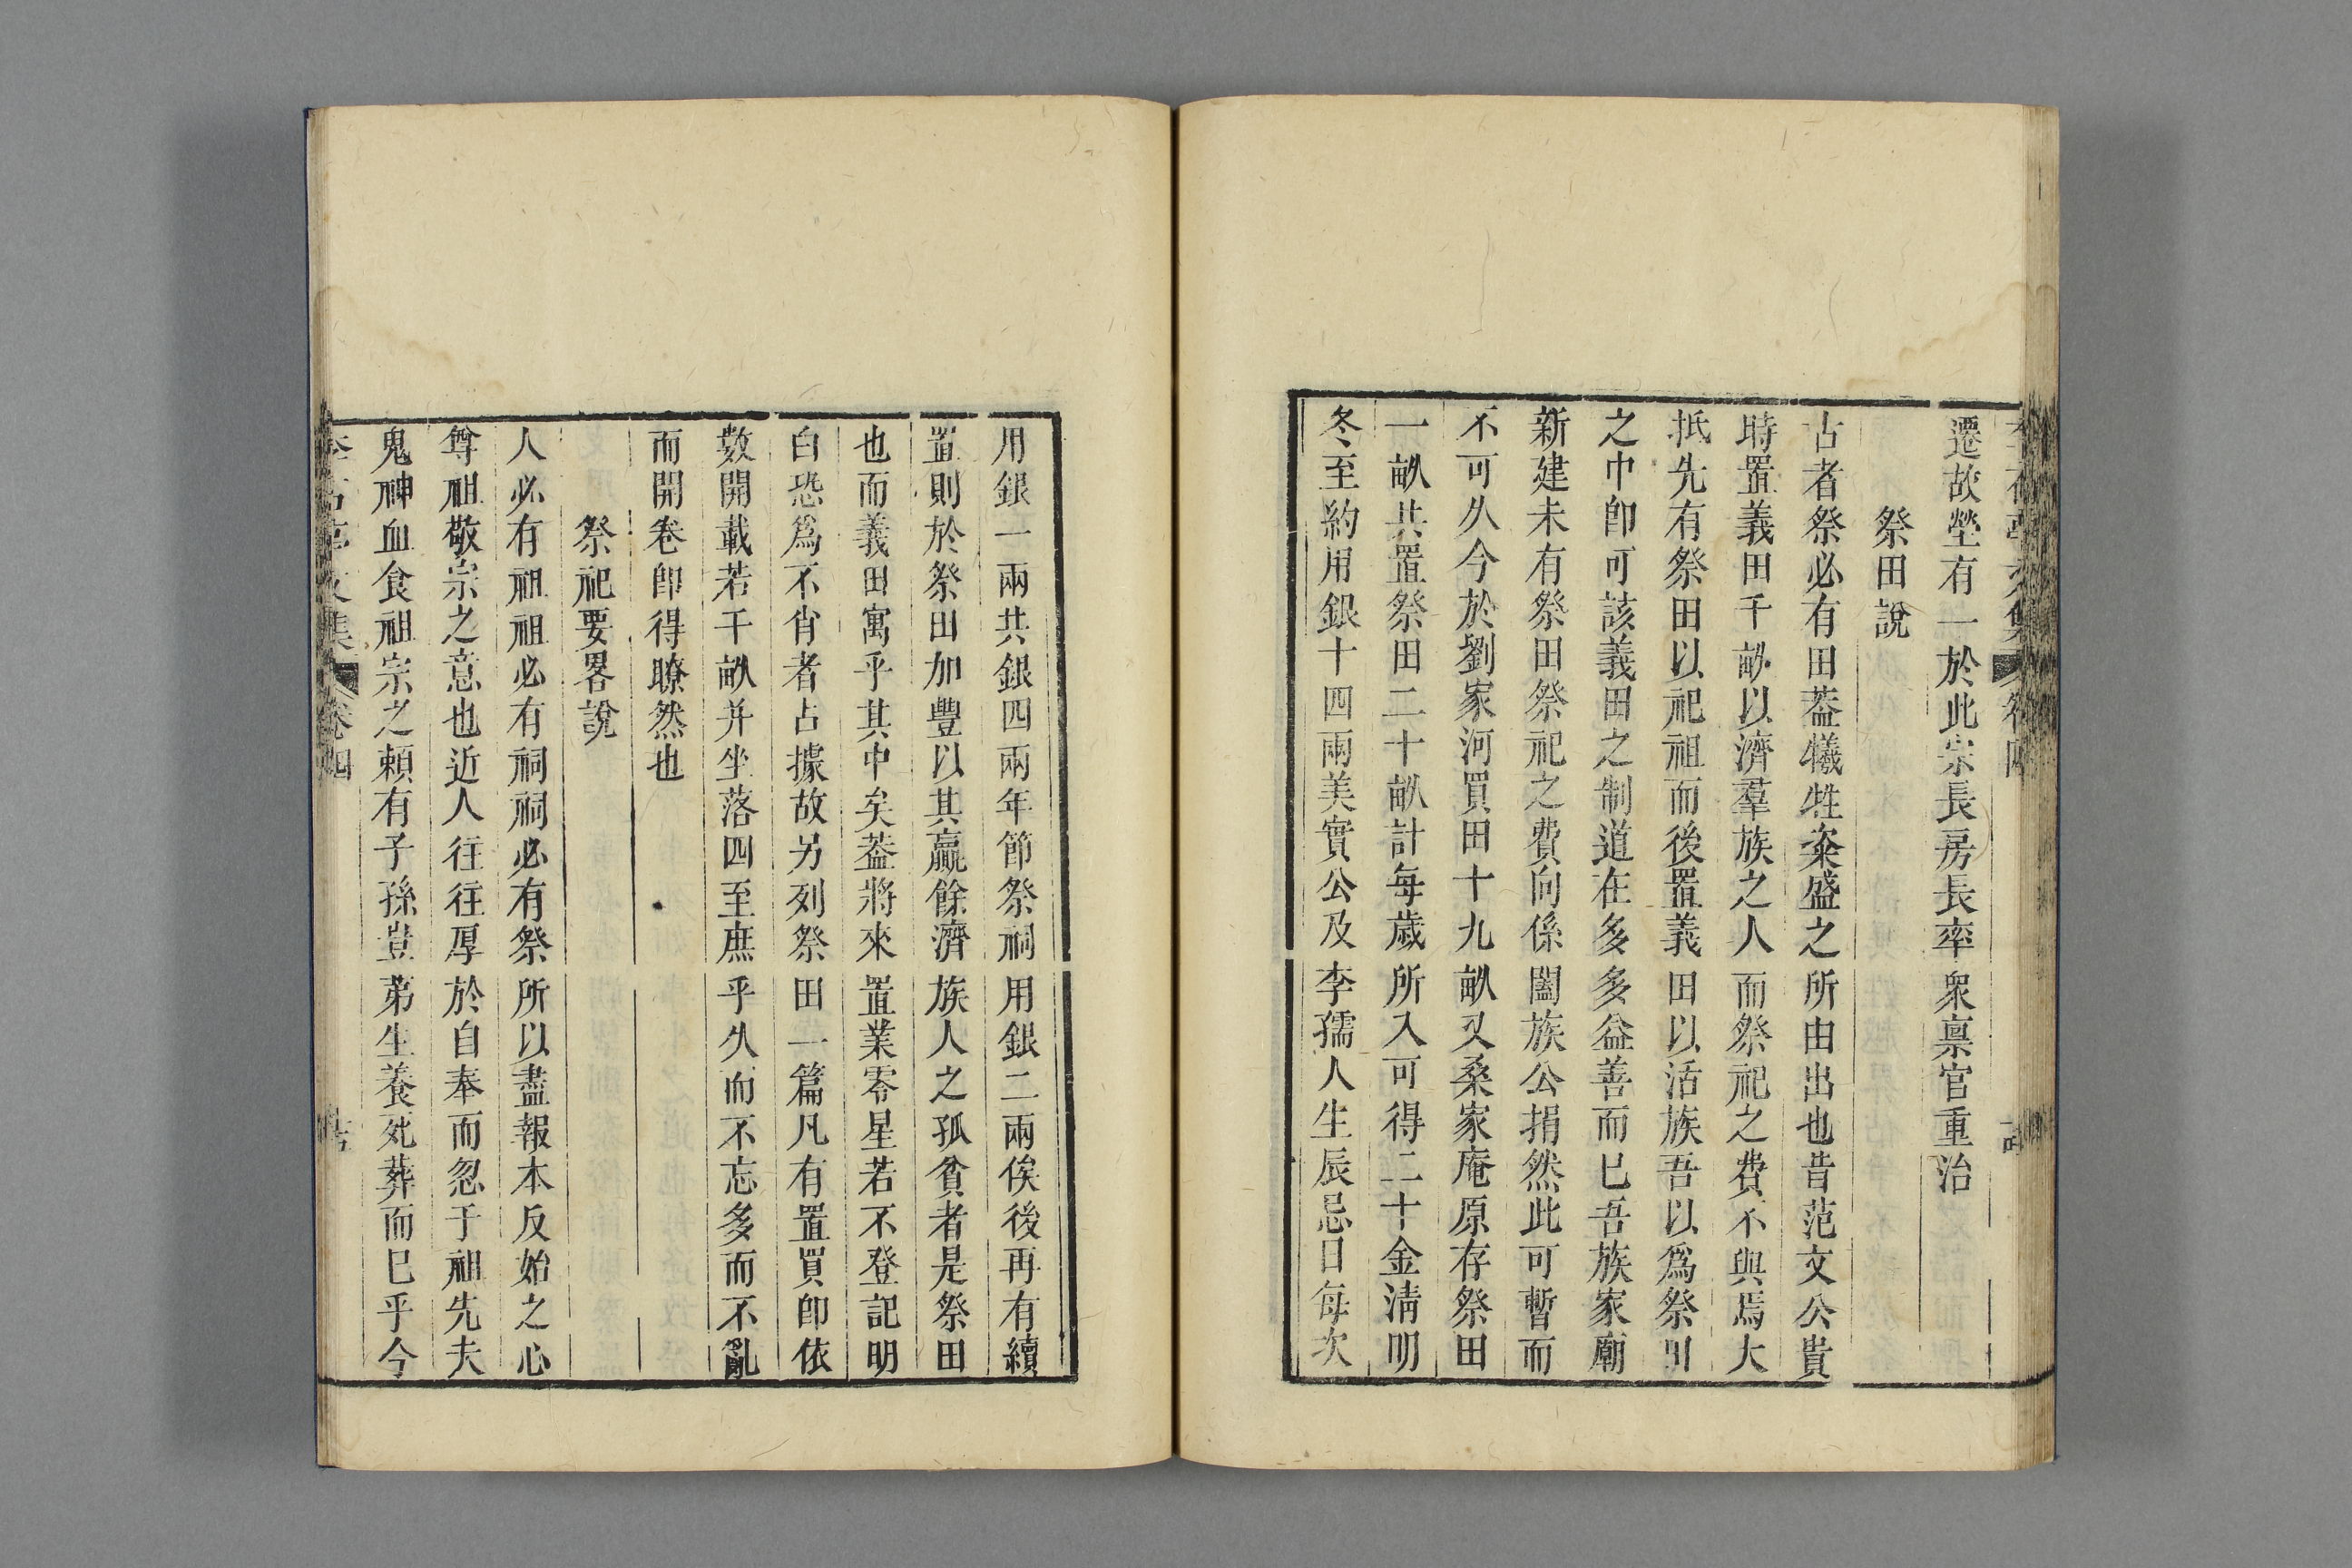 遷故塋有一於此宗長房長率衆禀官重治
祭田說
古者祭必有田葢犧牲粢盛之所由出也昔范文公貴
時置義田千畝以濟羣族之人而祭祀之費不與焉大
抵先有祭田以祀祖而後置義田以活族吾以爲祭田
之中卽可該義田之制道在多多益善而巳吾族家廟
新建未有祭田祭祀之費向係闔族公捐然此可暫而
不可久今於劉家河買田十九畝又桑家庵原存祭田
一畝共置祭田二十畝計每歲所入可得二十金淸明
冬至約用銀十四兩美實公及李孺人生辰忌日每次
用銀一兩共銀四兩年節祭祠用銀二兩俟後再有續
置則於祭田加豐以其贏餘濟族人之孤貧者是祭田
也而義田寓乎其中矣葢將來置業零星若不登記明
白恐爲不肖者占據故另列祭田一篇凡有置買卽依
數開載若干畝并坐落四至庶乎久而不忘多而不亂
而開卷卽得瞭然也
祭祀要畧說
人必有祖祖必有祠祠必有祭所以盡報本反始之心
尊祖敬宗之意也近人往往厚於自奉而忽于祖先夫
鬼神血食祖宗之賴有子孫豈第生養死葬而巳乎今
卷四